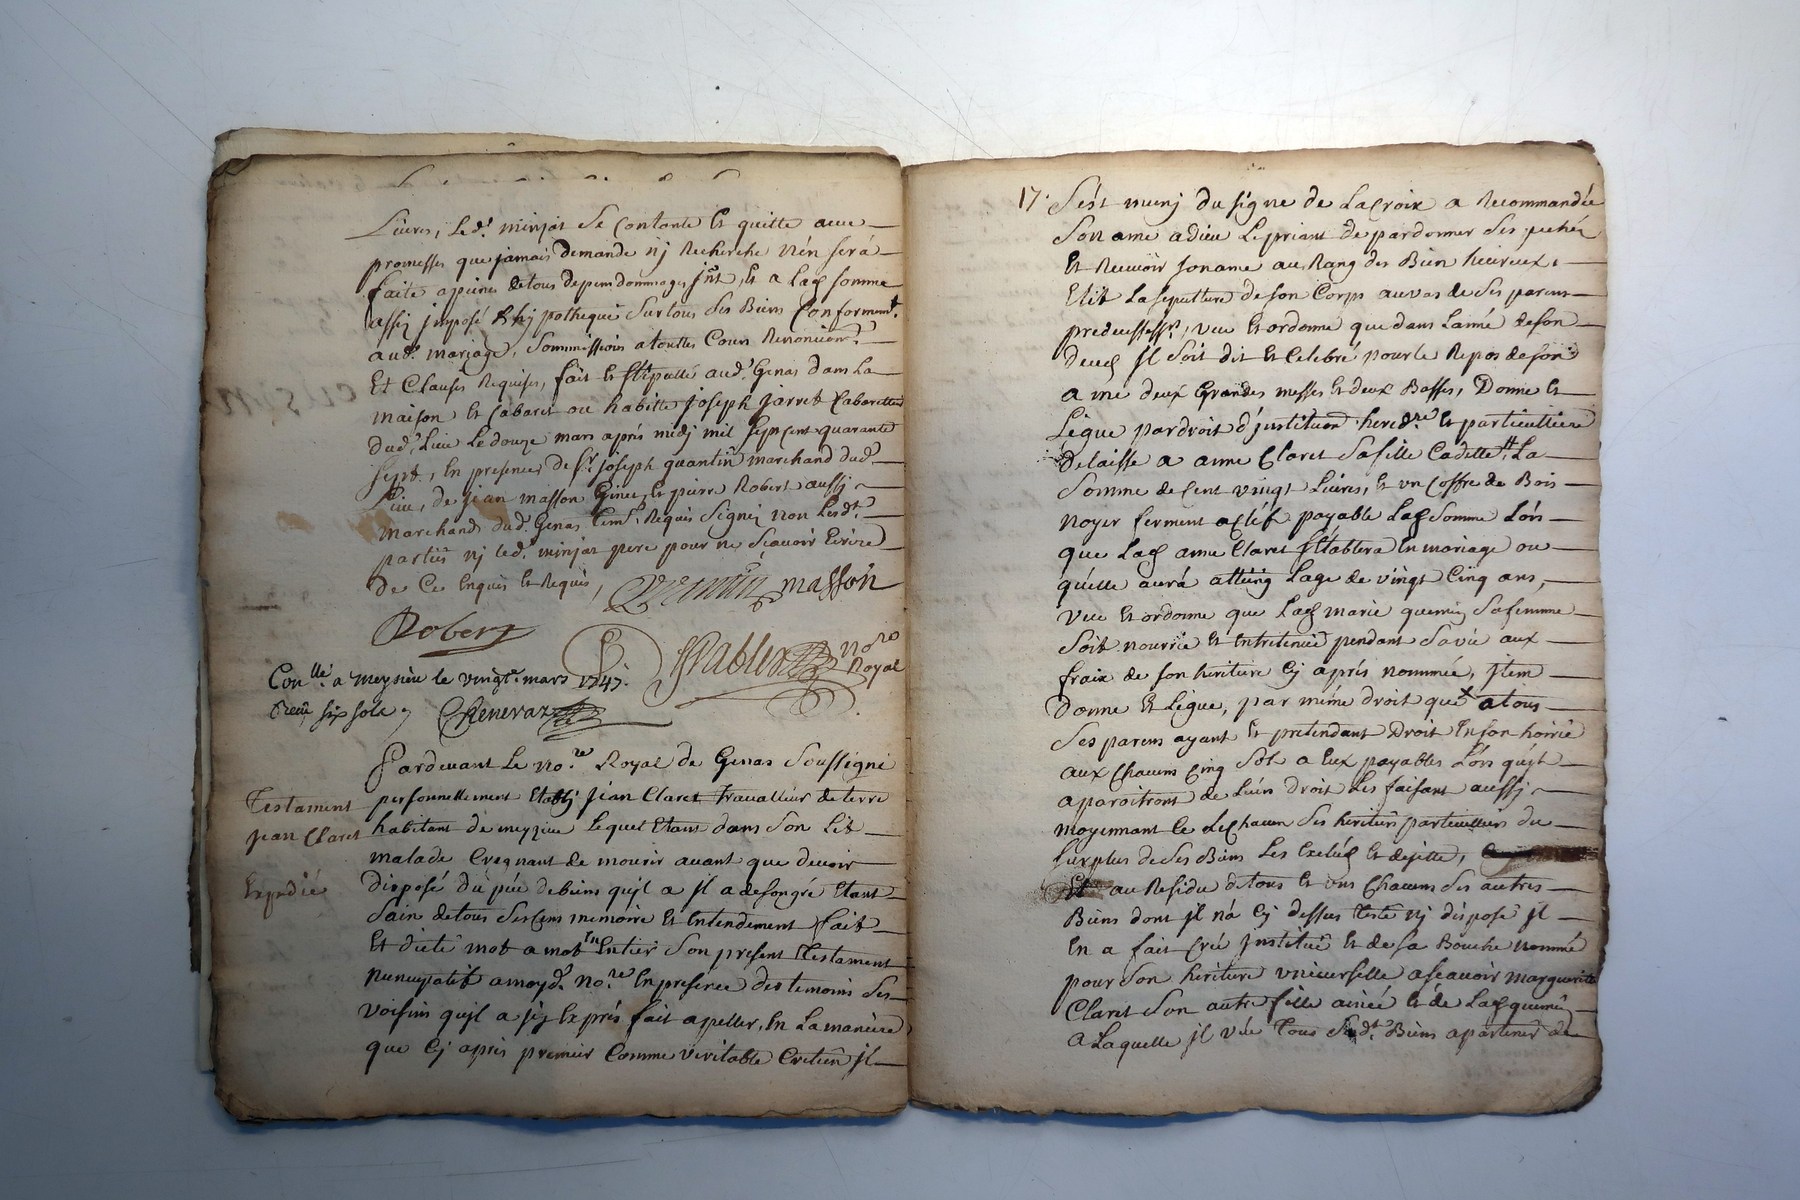 Livres, Led.t minjat se Contente et quitte avec
promesses que jamais demande nj Recherche n'en serà
faitte apeine detous depens dommages jnt, et a Lad somme
assez jmposé & hjpotheque sur tous ses Biens Conformemt.
aud.t mariage, soummissions a touttes Cours Renonciaon.
Et Clauses Requises, fait et stipullé aud.t Genas dans La
maison et Cabaret ou habitte joseph jarret Cabarettier
dud.t Lieu Le douze mars aprés midj mil sept Cent quarante
sept, en presence de sr. joseph quantin marchand dud.t
Lieu, de jean masson Ginet, et pierre Robert aussj
marchands dud.t Genas tems. Requis signéz non Lesdt.
parties nj led.t minjat pere pour ne sçavoir Ecrire
de Ce Enquis et Requis, Quantin masson
Robert
no.re Royal
Con.llé a meysieu le vingt.e mars 1747.
Receu six sols Chenevaz
Pardevant Le no.re Royal de Genas soussigné
Testament personnellement Etablj jean Claret travailleur de terre
jean Claret habitant de meyzieu Lequel Etant dans son Lit
malade Cregnant de mourir avant que d'avoir
Expedié disposé du peu debiens qujl a jl a desongré Etant
sain detous ses sens memoire et Entendement fait
Et dicté mot a mot en Entier son present Testament
nuncupatif amoyd.t no.re En presence des temoins ses
voisins qujl a jcy Exprés fait apeller, En La maniere
que Cj aprés premier Comme veritable Cretien jl
17. S'est munj du signe de La Croix a Recommandée
Son ame a dieu Le priant de pardonner ses pechéz
Et Recevoir son ame au Rang des Bien heureux.
Elit La sepulture de son Corps au vas de ses parens
predecesseurs, veut Et ordonne que dans L'anné de son
deced jl soit dit et Celebré pour le Repos de son
ame deux Grandes messes et deux Basses, Donne et
Legue par droit d'jnstituon hered.re et particuilliere
delaisse a anne Claret sa fille Cadette La
somme de Cent vingt Livres, et un Coffre de Bois
noyer ferment a Cléf payable Lad somme Lors
que Lad anne Claret s'Etablera En mariage ou
qu'elle aurá atteing Lage de vingt Cinq ans,
veut et ordonne que Lad marie quemin sa femme
soit nourrie et Entretenüe pendant sa vie aux
fraix de son heritiere Cj aprés nommée, jtem
Donne et Legue, par même droit que x a tous
ses parens ayant et pretendant Droit En son hoirie
aux Chacuns Cinq Sols a Eux payables Lors qu'jl
aparoitront de Leurs droit Les faisant aussj
moyennant ce Chacun ses heritiers particuliers du
surplus de ses Biens Les Exclud et dejette,
Et au Residu de tous et uns Chacuns ses autres
Biens dont jl n'a Cj dessus testé nj disposé jl
En a fait Créé jnstitué et de sa Bouche nommé
pour son heritiere universelle a sçavoir marguerite
Claret son autre fille ainée et de Lad quemin
a Laquelle jl veut Tous sesdt. Biens apartenir de